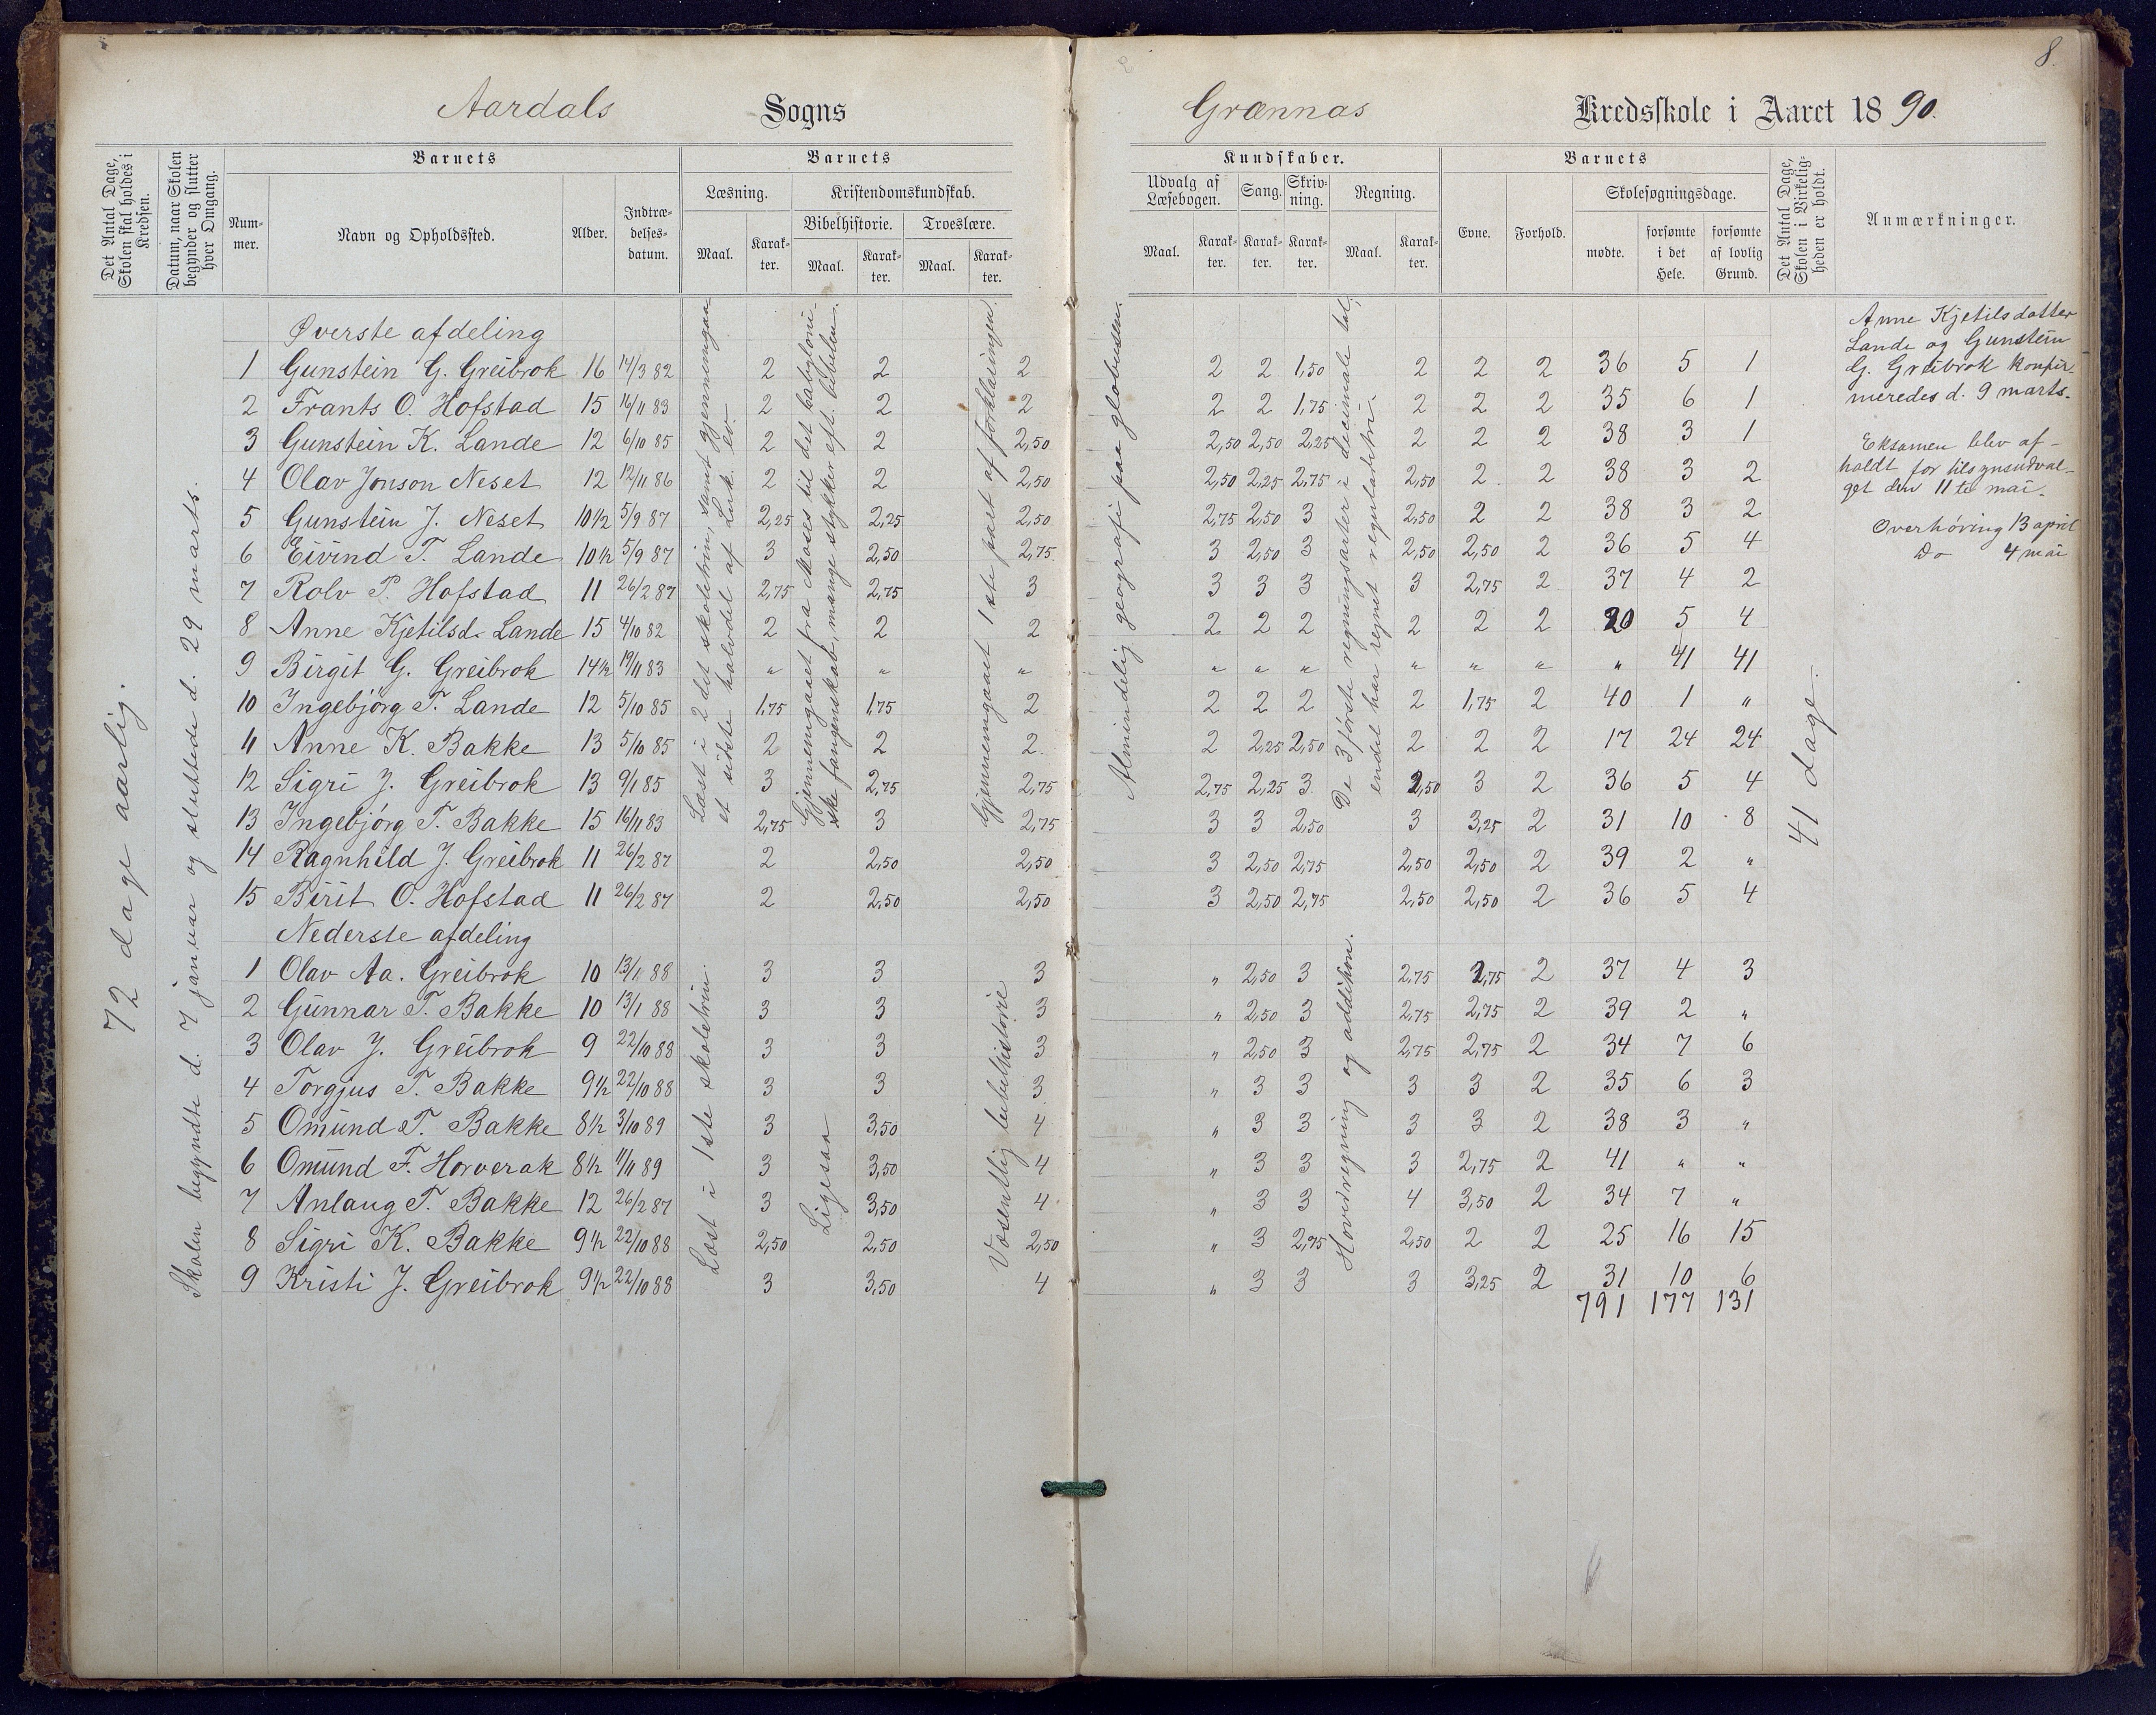 8.
Aardals Sogns Grænnas Kredsskole i Aaret 1890.
Det Antal Dage, Skolen skal holdes i Kredsen.
Datum, naar Skolen begynder og slutter hver Omgang.
Barnets
Nummer.
Navn og Opholdssted.
Alder.
Indtrædelsesdatum.
Barnets
Læsning.
Maal. Karakter.
Kristendomskundskab.
Bibelhistorie.
Maal. Karakter.
Troeslære.
Maal. Karakter.
Kundskaber.
Udvalg af Læsebogen.
Maal. Karakter.
Sang.
Karakter.
Skrivning.
Karakter.
Regning.
Maal. Karakter.
Barnets
Evne. Forhold.
Skolesøgningsdage.
mødte. forsømte i det Hele. forsømte af lovlig Grund.
Det Antal Dage, Skolen i Virkeligheden er holdt.
Anmærkninger.
72 dage aarlig.
Skolen begyndte d. 7 januar og sluttede d. 29 marts.
Øverste afdeling
1 Gunstein G. Greibrok 16 14/3 82 2 2 2 2 2 1,50 2 2 2 36 5 1
2 Frants O. Hofstad 15 16/11 83 2 2 2 2 2 1,75 2 2 2 35 6 1
3 Gunstein K. Lande 12 6/10 85 2 2 2,50 2,50 2,50 2,25 2 2 2 38 3 1
4 Olav Jonson Neset 12 12/11 86 2 2 2,50 2,50 2,25 2,75 2,50 2 2 38 3 2
5 Gunstein J. Neset 10 1/2 5/9 87 2,25 2,25 2,50 2,75 2,50 3 2,50 2 2 38 3 2
6 Eivind T. Lande 10 1/2 5/9 87 3 2,50 2,75 3 2,50 3 2,50 2,50 2 36 5 4
7 Rolv P. Hofstad 11 26/2 87 2,75 2,75 3 3 3 3 3 2,75 2 37 4 2
8 Anne Kjetilsd. Lande 15 4/10 82 2 2 2 2 2 2 2 2 2 20 5 4
9 Birgit G. Greibrok 14 1/2 19/11 83 " " " " " " " " " " 41 41
10 Ingebjørg T. Lande 12 5/10 85 1,75 1,75 2 2 2 2 2 1,75 2 40 1 "
11 Anne K. Bakke 13 5/10 85 2 2 2 2 2,25 2,50 2 2 2 17 24 24
12 Sigri J. Greibrok 13 9/1 85 3 2,75 2,75 2,75 2,25 3 2,50 3 2 36 5 4
13 Ingebjørg T. Bakke 15 16/11 83 2,75 3 2,75 3 3 2,50 3 3,25 2 31 10 8
14 Ragnhild J. Greibrok 11 26/2 87 2 2,50 2,50 3 2,50 2,75 2,50 2,50 2 39 2 "
15 Birit O. Hofstad 11 26/2 87 2 2,50 2,50 3 2,50 2,75 2,50 2,50 2 36 5 4
Nederste afdeling
1 Olav Aa. Greibrok 10 13/1 88 3 3 3 " 2,50 3 2,75 2,75 2 37 4 3
2 Gunnar T. Bakke 10 13/1 88 3 3 3 " 2,50 3 2,75 2,75 2 39 2 "
3 Olav J. Greibrok 9 22/10 88 3 3 3 " 2,50 3 2,75 2,75 2 34 7 6
4 Torgjus T. Bakke 9 1/2 22/10 88 3 3 3 " 3 3 3 3 2 35 6 3
5 Omund T. Bakke 8 1/2 3/10 89 3 3,50 4 " 3 3 3 3 2 38 3 "
6 Omund F. Horverak 8 1/2 11/11 89 3 3,50 4 " 3 3 3 2,75 2 41 " "
7 Anlaug T. Bakke 12 26/2 87 3 3,50 4 " 3 3 4 3,50 2 34 7 "
8 Sigri K. Bakke 9 1/2 22/10 88 2,50 2,50 2,50 " 3 2,75 2,50 2 2 25 16 15
9 Kristi J. Greibrok 9 1/2 22/10 88 3 3,50 4 " 3 3 3 3,25 2 31 10 6
791 177 131
Læst i 2 det skoletrin, samt gjennemgaaet sidste halvdel af Luk. ev.
Gjennemgaaet fra Moses til det babyloniske fangenskab, mange stykker eft. bibelen.
Gjennemgaaet 1ste part af forklaringen.
Almindelig geografi paa globusen.
De 3 første regningsarter i decimale tal; endel har regnet regulatorie.
41 dage.
Læst i 1ste skoletrin.
Ligesaa
Væsentlig bibelhistorie
Hovedregning og addition.
Anne Kjetilsdatter
Lande og Gunstein
G. Greibrok konfir-
meredes d. 9 marts.
Eksamen blev af-
holdt for tilsynsudval-
get den 11te mai.
Overhøring 13 april
Do 4 mai